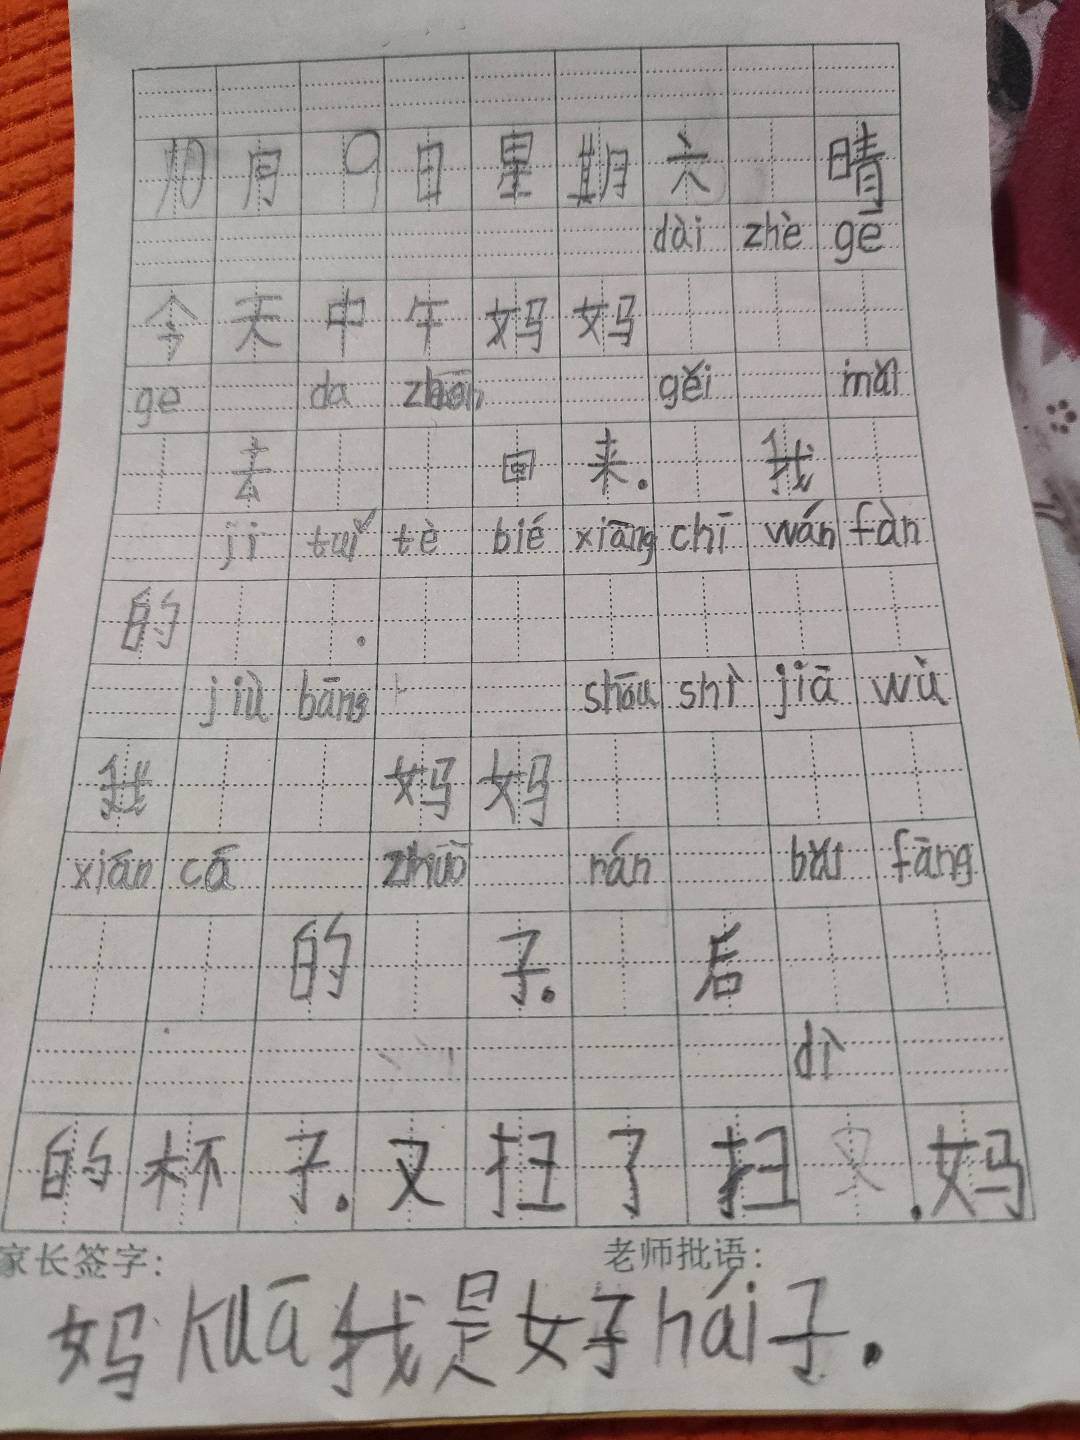 10月9日星期六 晴
dài zhè gē
今天中午妈妈
ge da gěi mǎi
去回来.我
jī tuǐ tè bié xiāng chī wán fàn
的.
jiù bāng shōu shì jiā wù
我妈妈
xiān cā zhuō rán bǎi fāng
的子.后
dì
的杯子.又扫了扫又.妈
家长签字: 老师批语:
妈kuā我是好hái子.